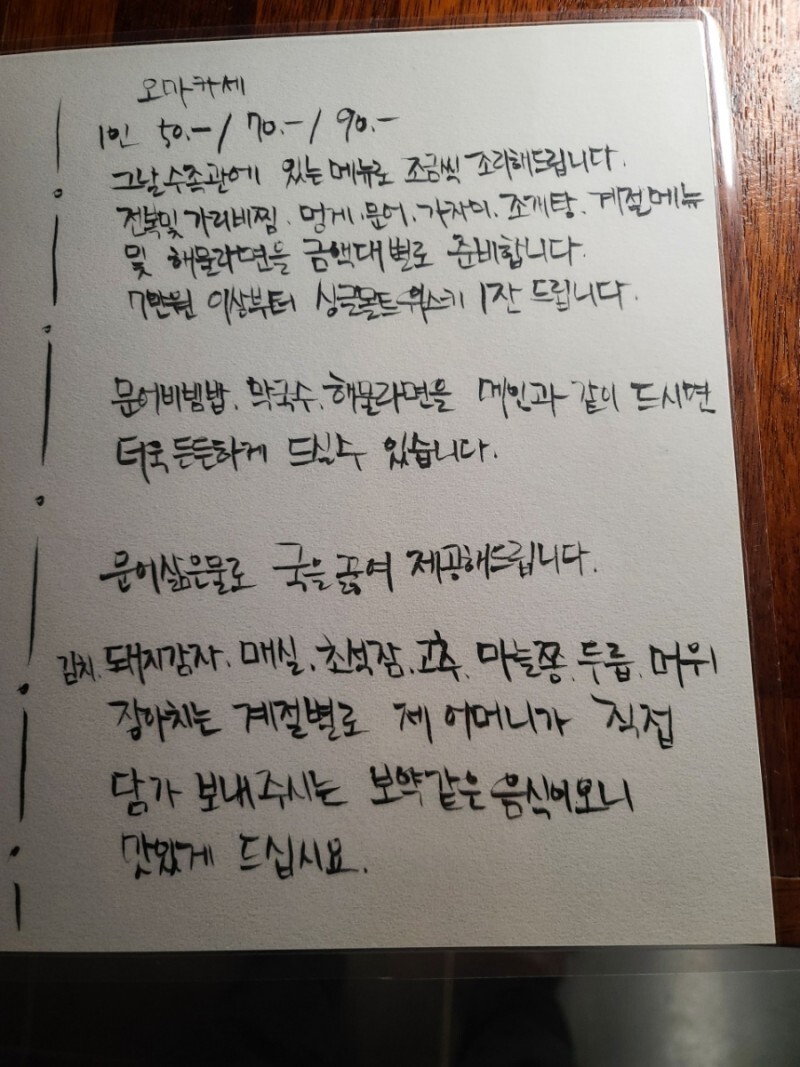 오마카세
1인 50.- / 70.- / 90.-
그날 수족관에 있는 메뉴로 조금씩 조리해드립니다.
전복및 가리비찜. 멍게. 문어. 가자미. 조개탕. 계절메뉴
및 해물라면을 금액대별로 준비합니다.
7만원 이상부터 싱글몰트 위스키 1잔 드립니다.
문어비빔밥. 막국수. 해물라면을 메인과 같이 드시면
더욱 든든하게 드실수 있습니다.
문어삶은물로 국을 끓여 제공해드립니다.
김치. 돼지감자. 매실. 초석잠. 고추. 마늘쫑. 두릅. 머위
장아치는 계절별로 제 어머니가 직접
담가 보내주시는 보약같은 음식이오니
맛있게 드십시요.